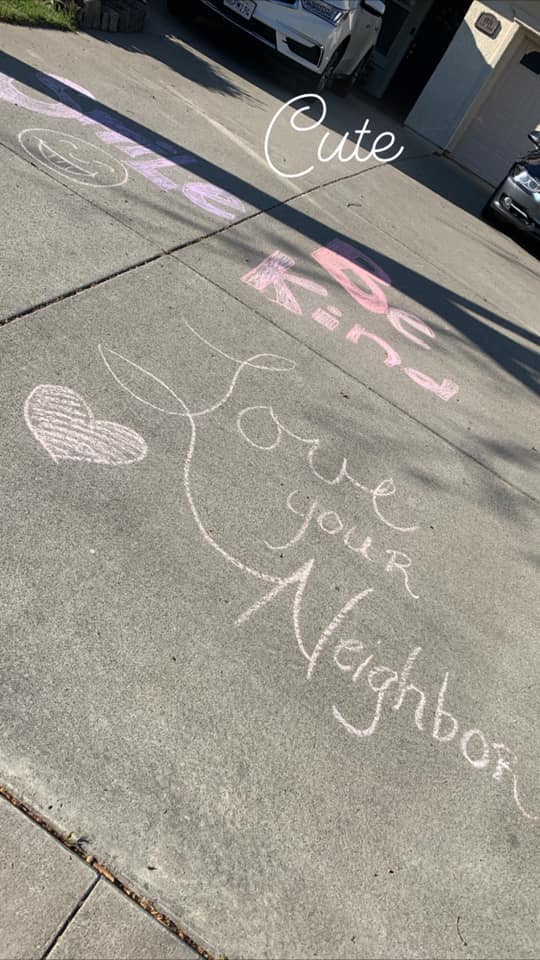 Cute
Smile
Be
Kind
Love
your
Neighbor